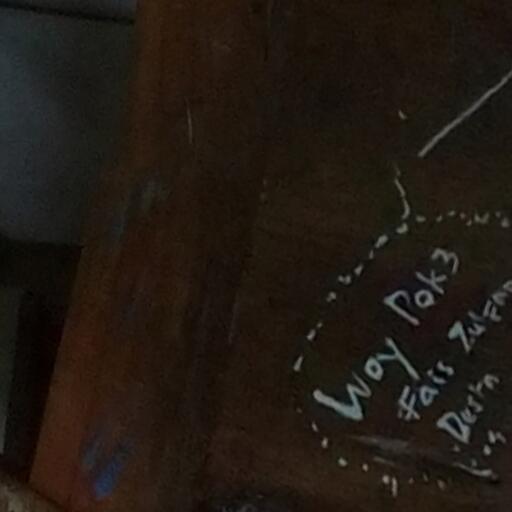 Woy Pok3
Fais Zulfan
Destn